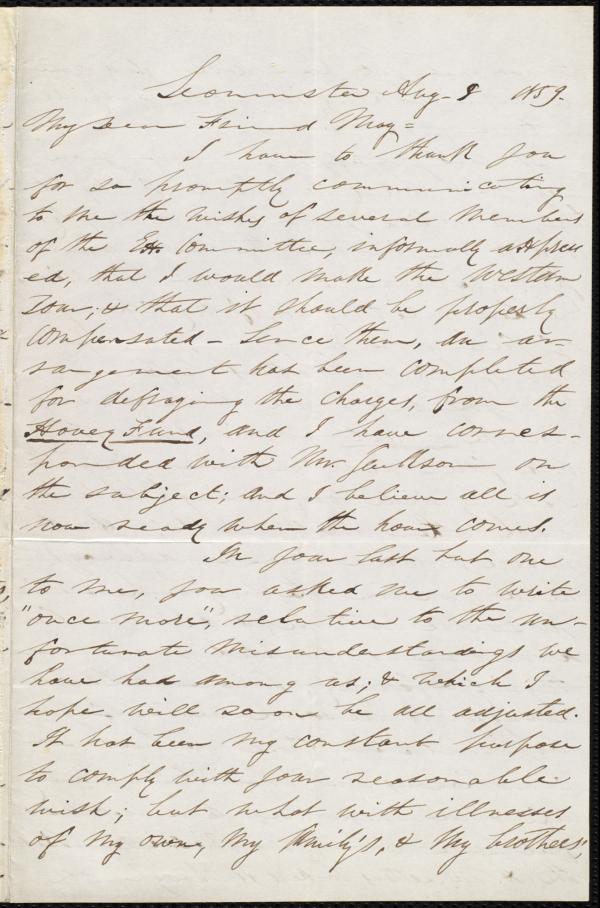 Leominster Aug. 8 1859.
My Dear Friend May=
I have to thank you
for so promptly communicating
to me the wishes of several members
of the Ex. Committee, informally express
ed, that I would make the Western
Tour; & that it should be properly
compensated - Since then, an ar-
rangement has been completed
for defraying the charges, from the
Hovey Fund, and I have corres-
ponded with Mr. on
the subject; and I believe all is
now ready when the hour comes.
In your last but one
to me, you asked me to write
"once more", relative to the un-
fortunate misunderstandings we
have had among us; & which I
hope will soon be all adjusted.
It has been my constant purpose
to comply with your reasonable
wish; but what with illnesses
of my own, my family's, & my brothers',